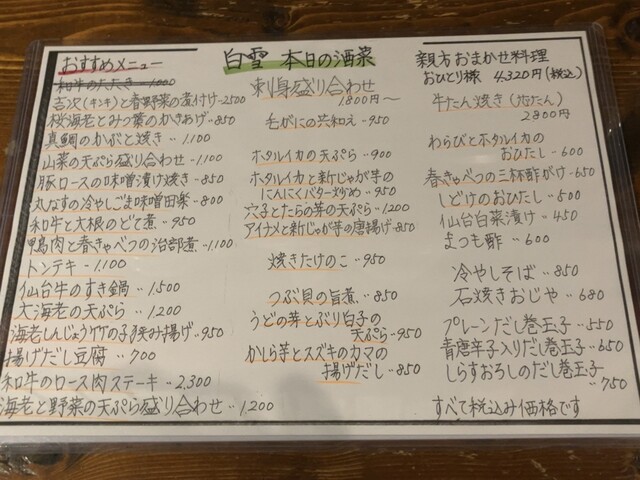 おすすめメニュー
和牛のたたき 1,000
吉次(キンキ)と春野菜の煮付け-2500
桜海老とみつ葉のかきあげ‥850
真鯛のかぶと焼き‥1,100
山菜の天ぷら盛り合わせ‥1,100
豚ロースの味噌漬け焼き‥850
丸なすの冷やしごま味噌田楽‥800
和牛と大根のどて煮‥950
鴨肉と春きゃべつの治部煮‥1,100
トンテキ‥1,100
仙台牛のすき鍋‥1,500
大海老の天ぷら‥1,200
海老しんじょうタケの子挟み揚げ‥950
揚げだし豆腐‥700
和牛のロース肉ステーキ‥2,300
海老と野菜の天ぷら盛り合わせ‥1,200
白雪 本日の酒菜
刺身盛り合わせ
1800円〜
毛がにの共和え‥950
ホタルイカの天ぷら‥900
ホタルイカと新じゃが芋の
にんにくバター炒め‥950
穴子とたらの芽の天ぷら‥1,200
アイナメと新じゃが芋の唐揚げ‥850
焼きたけのこ‥950
つぶ貝の旨煮‥850
うどの芽とぶり白子の
天ぷら‥950
かしら芋とスズキのカマの
揚げだし‥850
親方おまかせ料理
おひとり様 4,320円(税込)
牛たん焼き(芯たん)
2800円
わらびとホタルイカの
おひたし‥600
春きゃべつの三杯酢がけ‥650
しどけのおひたし‥500
仙台白菜漬け‥450
まつも酢‥600
冷やしそば‥850
石焼きおじや‥680
プレーンだし巻玉子‥550
青唐辛子入りだし巻玉子‥650
しらすおろしのだし巻玉子
‥750
すべて税込み価格です